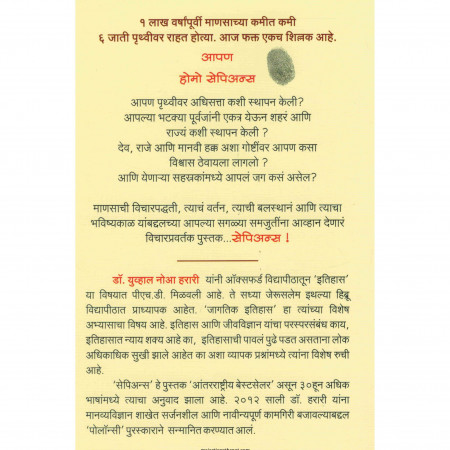 १ लाख वर्षांपूर्वी माणसाच्या कमीत कमी
६ जाती पृथ्वीवर राहत होत्या. आज फक्त एकच शिल्लक आहे.
आपण
होमो सेपिअन्स
आपण पृथ्वीवर अधिसत्ता कशी स्थापन केली?
आपल्या भटक्या पूर्वजांनी एकत्र येऊन शहरं आणि
राज्यं कशी स्थापन केली ?
देव, राजे आणि मानवी हक्क अशा गोष्टींवर आपण कसा
विश्वास ठेवायला लागलो ?
आणि येणाऱ्या सहस्रकांमध्ये आपलं जग कसं असेल?
माणसाची विचारपद्धती, त्याचं वर्तन, त्याची बलस्थानं आणि त्याचा
भविष्यकाळ यांबद्दलच्या आपल्या सगळ्या समजुतींना आव्हान देणारं
विचारप्रवर्तक पुस्तक...सेपिअन्स !
डॉ. युव्हाल नोआ हरारी यांनी ऑक्सफर्ड विद्यापीठातून 'इतिहास'
या विषयात पीएच.डी. मिळवली आहे. ते सध्या जेरूसलेम इथल्या हिब्रू
विद्यापीठात प्राध्यापक आहेत. 'जागतिक इतिहास' हा त्यांच्या विशेष
अभ्यासाचा विषय आहे. इतिहास आणि जीवविज्ञान यांचा परस्परसंबंध काय,
इतिहासात न्याय शक्य आहे का, इतिहासाची पावलं पुढे पडत असताना लोक
अधिकाधिक सुखी झाले आहेत का अशा व्यापक प्रश्नांमध्ये त्यांना विशेष रुची
आहे.
'सेपिअन्स' हे पुस्तक 'आंतरराष्ट्रीय बेस्टसेलर' असून ३०हून अधिक
भाषांमध्ये त्याचा अनुवाद झाला आहे. २०१२ साली डॉ. हरारी यांना
मानव्यविज्ञान शाखेत सर्जनशील आणि नावीन्यपूर्ण कामगिरी बजावल्याबद्दल
'पोलॉन्सी' पुरस्काराने सन्मानित करण्यात आलं.